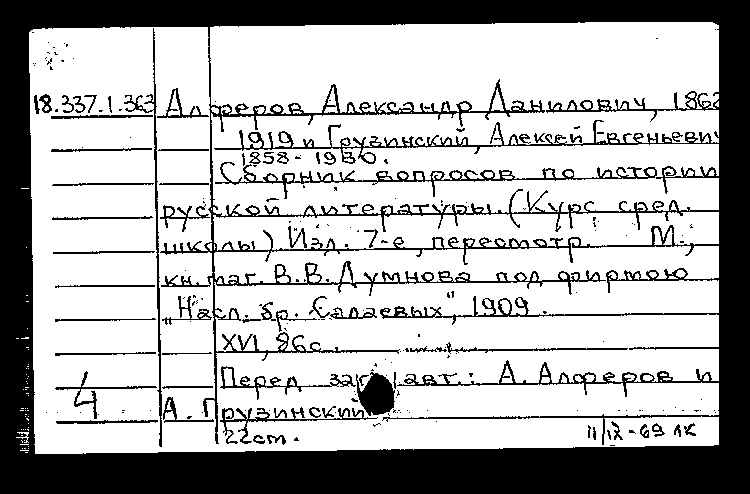 18.337.1.363 Алферов, Александр Данилович, 1862
1919 и Грузинский, Алексей Евгеньевич
1858-1930.
Сборник вопросов по истории
русской литературы. (Курс сред.
школы). Изд. 7-е, пересмотр. М.,
кн. маг. В.В. Думнова под фирмою
„Насл. бр. Салаевых", 1909.
XVI, 86с.
Перед загл. авт.: А. Алферов и
4 А. Грузинский
22 cm. 11/IX-69 ЛК